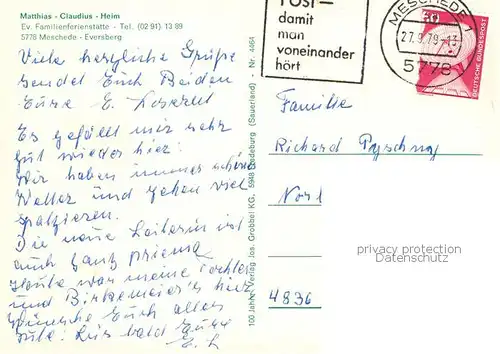 Matthias - Claudius - Heim
Ev. Familienferienstätte - Tel. (02 91) 13 89
5778 Meschede - Eversberg
Viele herzliche Grüße
sendet Euch Beiden
Eure E.
Es gefällt mir sehr
gut wieder hier.
Wir haben immer schönes
Wetter und gehen viel
spazieren.
Die neue Leiterin ist
auch ganz prima
Heute war meine Tochter
und Birkemeier's hier
Wünsche Euch alles
Gute. Bis bald Eure
E. L
100 Jahre Verlag Jos. Grobbel KG, 5948 Fredeburg (Sauerland) - Nr. 4464
POST-
damit
man
voneinander
hört
MESCHEDE 1
27.9.79-13
5778
60
DEUTSCHE BUNDESPOST
Familie
Richard
4836
privacy protection
Datenschutz